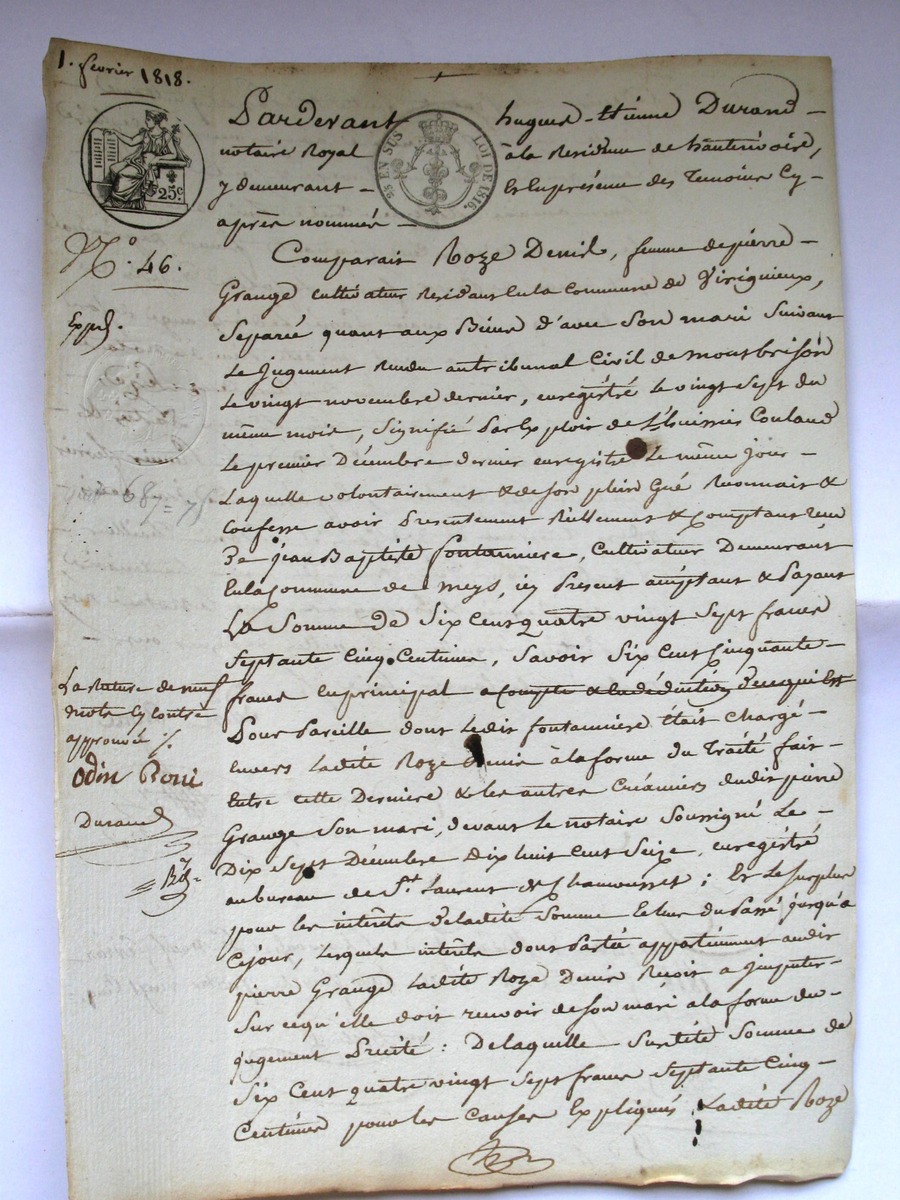 1. fevrier 1818.
25c.
25 EN SUS
LOI DE 1816.
Pardevant hugues-Etienne Durand -
notaire Royal à la Residense de hauterivoire,
y demeurant - Et En présense des Temoins Cy-
après nommés -
N.o 46.
Exp.
Comparait Roze Denis, femme de pierre -
Grange cultivateur Residant En la Commune de Virignieux,
Separée quant aux Biens d'avec Son mari Suivant
Le Jugement Rendu au tribunal Civil de montbrison
Le vingt novembre dernier, enregistré Le vingt Sept du
même mois, Signifié Par Exploit de L'huissier Couland
Le premier Décembre dernier enregistré Le même jour -
Laquelle volontairement & de son plein Gré Reconnait &
Confesse avoir Presentement Réellement & Comptant reçu
De jean Baptiste fontannière, Cultivateur Demeurant
En la Commune de meys, icy Present acceptant & Payant
La Somme de Six Cent quatre vingt Sept francs
Septante Cinq Centimes, Savoir Six Cent Cinquante
francs en principal a Compte & En déduction De ce qui Est
Pour Pareille dont Ledit fontannière était Chargé -
envers Ladite Roze Denis à la forme du Traité fait -
Entre cette Dernière & les autres Créanciers dudit pierre
Grange Son mari, devant le notaire Soussigné Le -
Dix Sept Décembre dix huit Cent Seize, enregistré
au bureau de St. Laurent de Chamousset ; Et Le Surplus
pour les intérêts De ladite Somme Echus du Passé jusqu'a
Ce jour, Lesquels intérêts dont Partie appartiennent audit
pierre Grange Ladite Roze Denis Recoit a jmputer
Sur ce qu'elle doit recevoir de son mari a la forme du -
jugement Precité : De laquelle Susdite Somme de
Six Cent quatre vingt Sept francs Septante Cinq -
Centimes pour les Causes Expliquées, Ladite Roze
La Rature de neuf
mots cy contre
approuvée ./.
Odin Boni
Durand